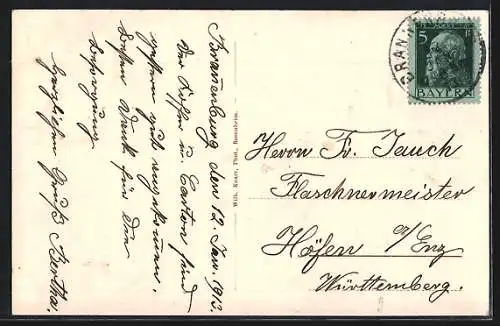 Brannenburg den 12. Jan. 1913.
Der Koffer u. Carton sind
gestern gut angekommen.
Besten Dank für die
Besorgung
Herzlichen Gruß Bertha.
Wilh. Knarr, Phot., Rosenheim.
BRANN
5 5
BAYERN
Herrn Fr. Jauch
Flaschnermeister
Höfen a/Enz
Württemberg.